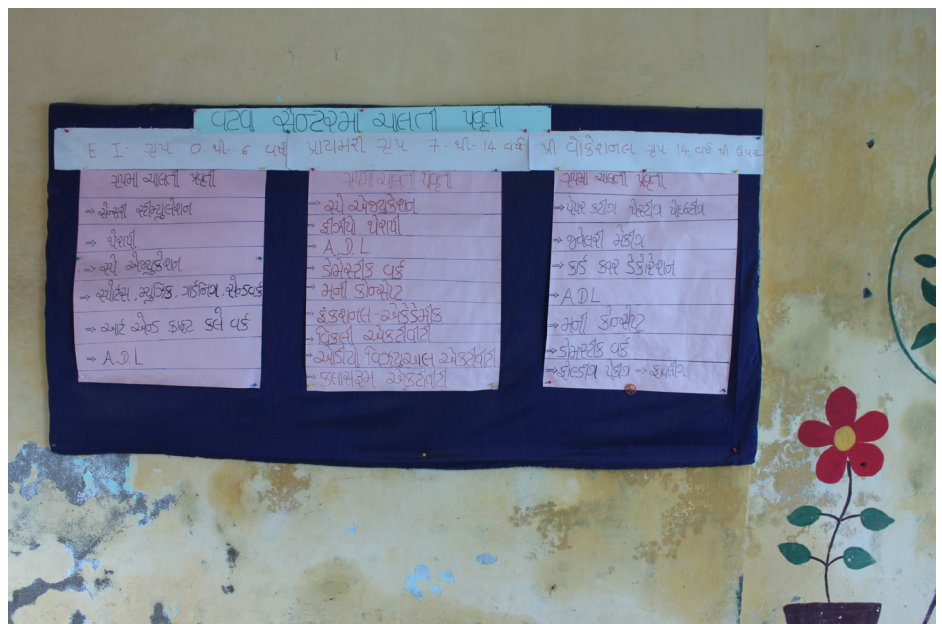 વટવા સેન્ટરમાં ચાલતી પ્રવૃતી
E I. ગૃપ 0 થી. ૬ વર્ષ
ગૃપમાં ચાલતી પ્રવૃતી
→ સેન્સરી સ્ટીમ્યુલેશન
→ થેરાપી
→ સ્પે એજ્યુકેશન
→ સ્પોર્ટસ, મ્યુઝિક, ગાર્ડનિંગ, સેન્ડવર્ક
→ આર્ટ એન્ડ ક્રાફ્ટ કલે વર્ક
→ A.D.L
પ્રાયમરી ગૃપ 7. થી. 14 વર્ષ
ગૃપમાં ચાલતી પ્રવૃતી
→ સ્પે એજ્યુકેશન
→ ફીઝીયો થેરાપી
→ A.D.L
→ ડોમેસ્ટીક વર્ક
→ મની કોન્સેપ્ટ
→ ફંકશનલ-એકેડેમીક
→ વિકલી એકટીવીટી
→ ઓડીયો વિઝ્યુઅલ એકટીવીટી
→ કલાસરૂમ એકટીવીટી
પ્રી વોકેશનલ ગૃપ 14 વર્ષ થી ઉપર
ગૃપમાં ચાલતી પ્રવૃતી
→ પેપર કટીંગ પેસ્ટીંગ પેઈન્ટીંગ
→ જ્વેલરી મેકીંગ
→ કાર્ડ કવર ડેકોરેશન
→ ADL
→ મની કોન્સેપ્ટ
→ ડોમેસ્ટીક વર્ક
→ ફોલ્ડીંગ પેકીંગ →